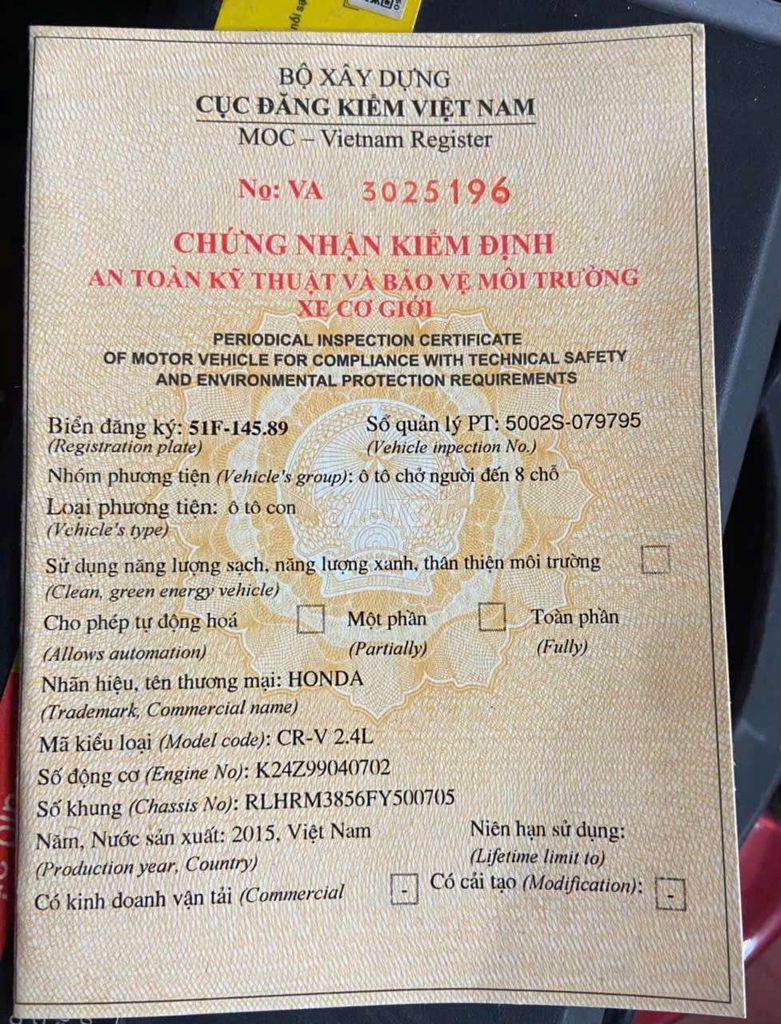 nổi sạ
BỘ XÂY DỰNG
CỤC ĐĂNG KIỂM VIỆT NAM
MOC – Vietnam Register
No: VA 3025196
CHỨNG NHẬN KIỂM ĐỊNH
AN TOÀN KỸ THUẬT VÀ BẢO VỆ MÔI TRƯỜNG
XE CƠ GIỚI
PERIODICAL INSPECTION CERTIFICATE
OF MOTOR VEHICLE FOR COMPLIANCE WITH TECHNICAL SAFETY
AND ENVIRONMENTAL PROTECTION REQUIREMENTS
Biển đăng ký: 51F-145.89 Số quản lý PT: 5002S-079795
(Registration plate) (Vehicle inpection No.)
Nhóm phương tiện (Vehicle's group): ô tô chở người đến 8 chỗ
Loại phương tiện: ô tô con
(Vehicle's type)
Sử dụng năng lượng sạch, năng lượng xanh, thân thiện môi trường
(Clean, green energy vehicle)
Cho phép tự động hoá Một phần Toàn phần
(Allows automation) (Partially) (Fully)
Nhãn hiệu, tên thương mại: HONDA
(Trademark, Commercial name)
Mã kiểu loại (Model code): CR-V 2.4L
Số động cơ (Engine No): K24Z99040702
Số khung (Chassis No): RLHRM3856FY500705
Năm, Nước sản xuất: 2015, Việt Nam Niên hạn sử dụng:
(Production year, Country) (Lifetime limit to)
Có kinh doanh vận tải (Commercial - Có cải tạo (Modification): -